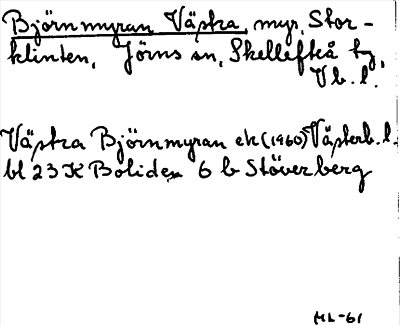 Björnmyran Västra, myr, Stor-
klinten, Jörns sn, Skellefteå tg,
Vb. l.
Västra Björnmyran ek (1960) Västerb. l.
bl 23 K Boliden 6 b Stöverberg
HL-61